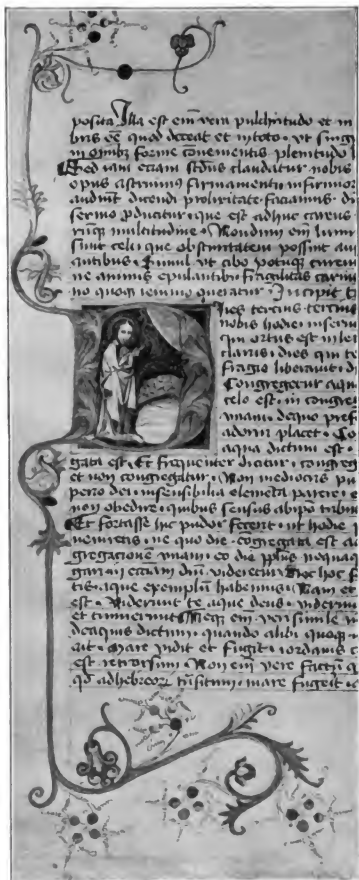 posita. Illa est em̄ vera pulchritudo et in
bris eē quod deceat et in toto. vt singl
in om̄ibꝫ forme cōvenientis plenitudo l
Sed iam eciam scd̄us claudatur nobis
opus astruim9 firmamenti infirmior
audiut dicendi prolixitate faciamus. di
sermo ꝓducatur. que est adhuc carens
multitudine. Nondum em̄ lumi
sunt celi que obscuritatem possint au
antibus. Simul vt cibo potuqꝫ curem
ne animis epulantibꝫ fragilitas carnis
no quoqꝫ ieiunio queratur. Incipit t
ies tercius. tercius
nobis hodie in sermo
qui ortus est in lec
clarus. dies qui te
fragio liberauit. di
Congregetur aqu
celo est. in congre
vnam. de quo pref
adoriri placet. Co
aqua dictum est.
gata est. Et frequenter dicitur. congreg
et non congregatur. Non mediocris pu
pero dei. insensibilia elemēta parere. e
non obedire. quibus sensus ab ipo tribu
Et fortasse hic pudor fecerit. vt hodie
veniens. ne quo die cōgregata est aq
gregacione vnam. eo die pp̄lus nequaq
gari in ecciam dn̄i videretur. Nec hoc
tis. aque exemplū habemus. Nam et
est. Viderunt te aque deus. viderunt
et timuerunt. Neqꝫ em̄ veri simile n
de aquis dictum. quando alibi quoqꝫ
ait. Mare vidit et fugit. iordanis c
est retrorsum. Non em̄ vere factū
mare fugerit